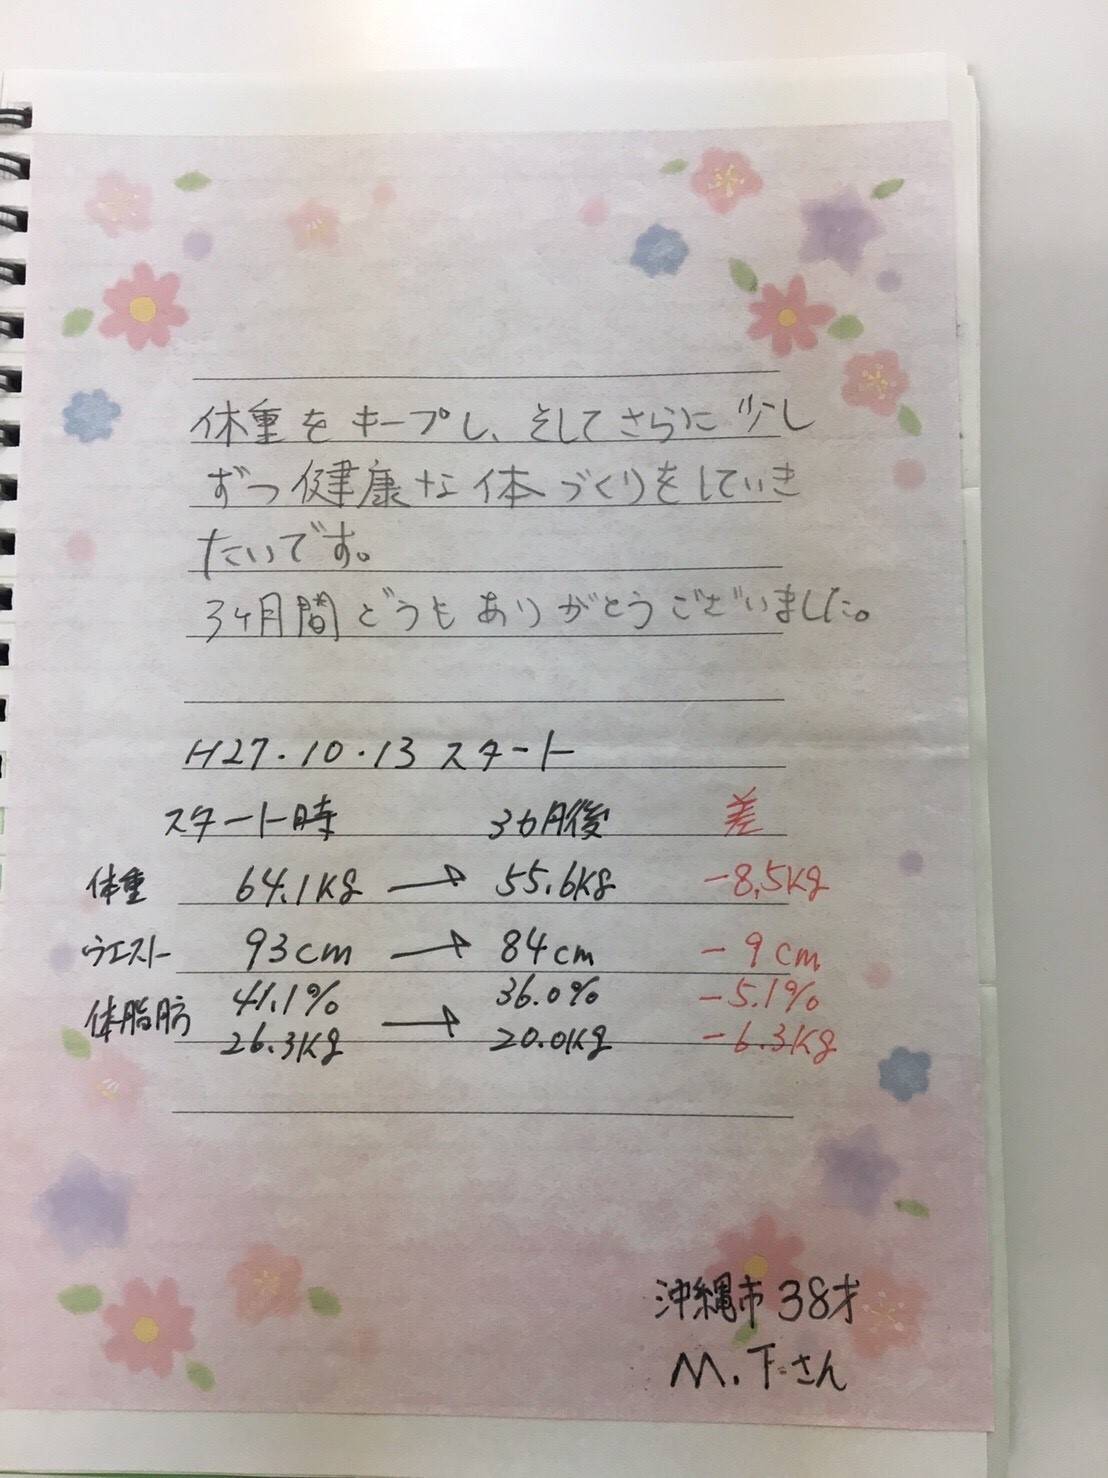 体重をキープし、そしてさらに少し
ずつ健康な体づくりをしていき
たいです。
3ヶ月間どうもありがとうございました。
H27.10.13 スタート
スタート時 3カ月後 差
体重 64.1kg → 55.6kg -8.5kg
ウエスト 93cm → 84cm -9cm
体脂肪 41.1% 26.3kg → 36.0% 20.0kg -5.1% -6.3kg
沖縄市 38才
M.下さん